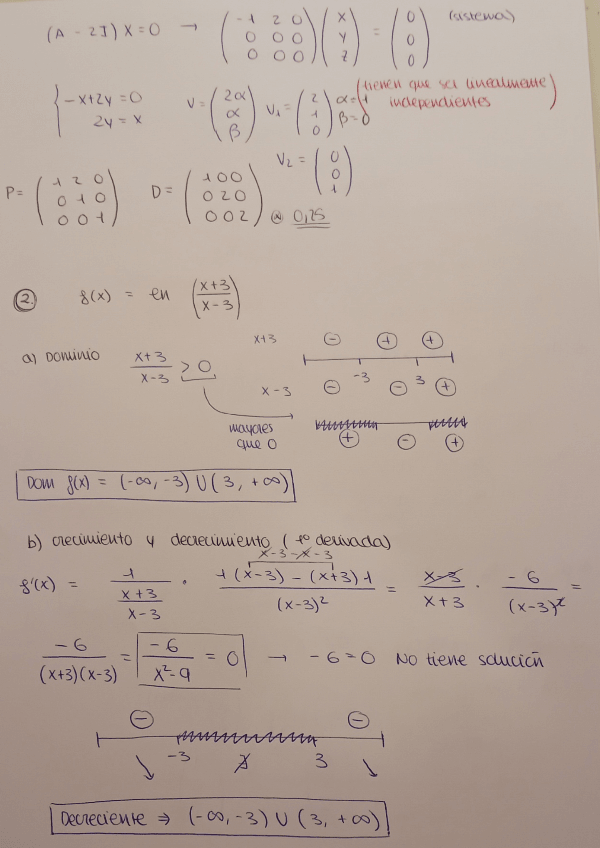 (A - 2I) X = 0 → ( -1 2 0 / 0 0 0 / 0 0 0 ) ( x / y / z ) = ( 0 / 0 / 0 ) (sistema)
{ -x+2y = 0 / 2y = x V = ( 2α / α / β ) V1 = ( 2 / 1 / 0 ) α=1 β=0 (tienen que ser linealmente independientes)
V2 = ( 0 / 0 / 1 )
P = ( 1 2 0 / 0 1 0 / 0 0 1 ) D = ( 1 0 0 / 0 2 0 / 0 0 2 ) @ 0,25
2. f(x) = en ( x+3 / x-3 )
a) Dominio x+3 / x-3 > 0
x+3 - + +
-3 3
x-3 - - +
mayores que 0
+ - +
Dom f(x) = (-∞, -3) U (3, +∞)
b) crecimiento y decrecimiento (1º derivada)
x-3-x-3
f'(x) = 1 / (x+3 / x-3) · 1(x-3) - (x+3)1 / (x-3)² = x-3 / x+3 · -6 / (x-3)² =
-6 / (x+3)(x-3) = -6 / x²-9 = 0 → -6=0 No tiene solución
- -
-3 ∄ 3
Decreciente ⇒ (-∞, -3) U (3, +∞)